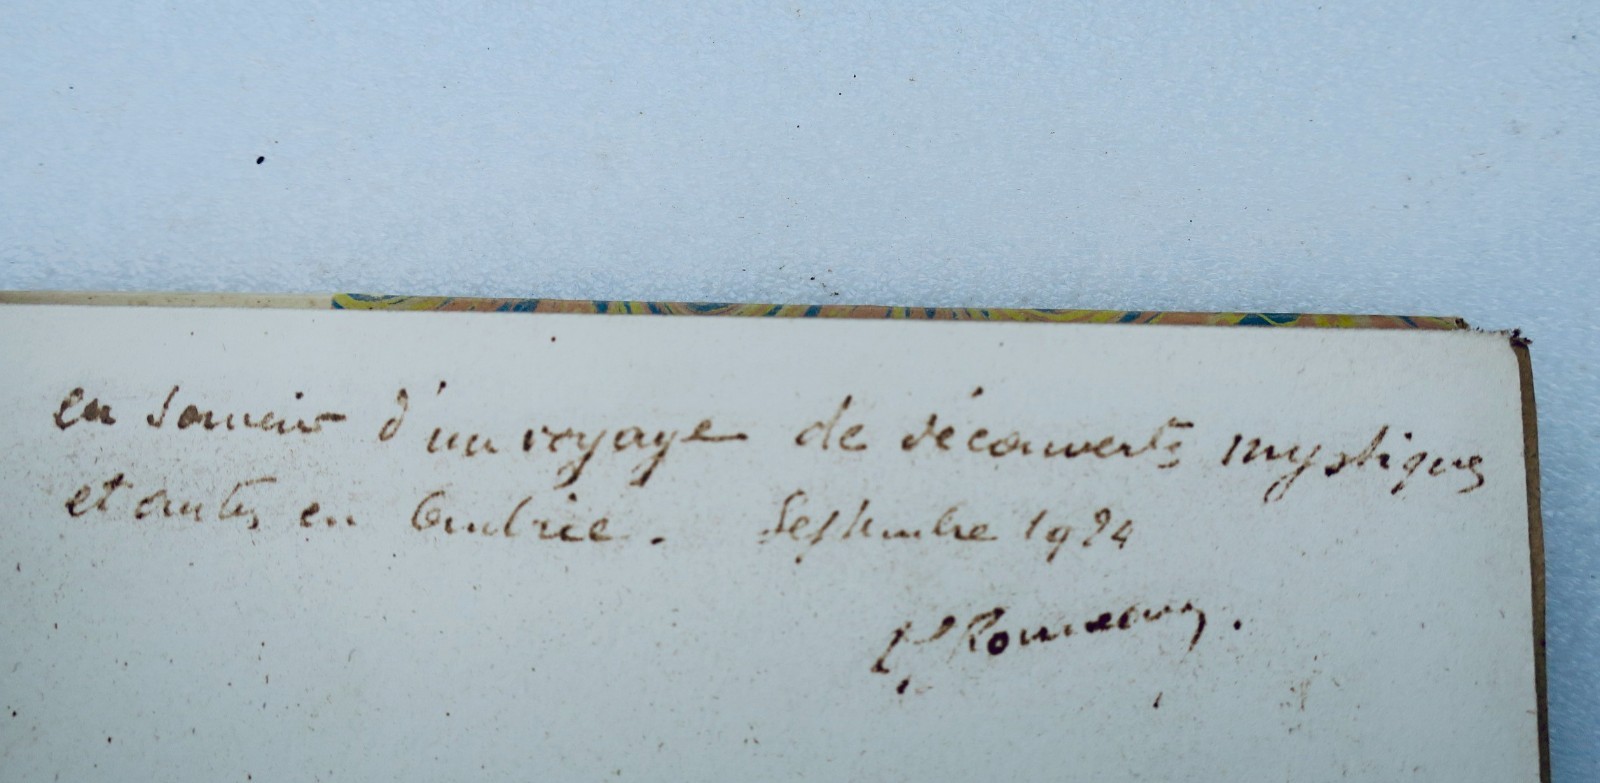 en souvenir d'un voyage de découvertes mystiques
et autres en Ombrie. Septembre 1924